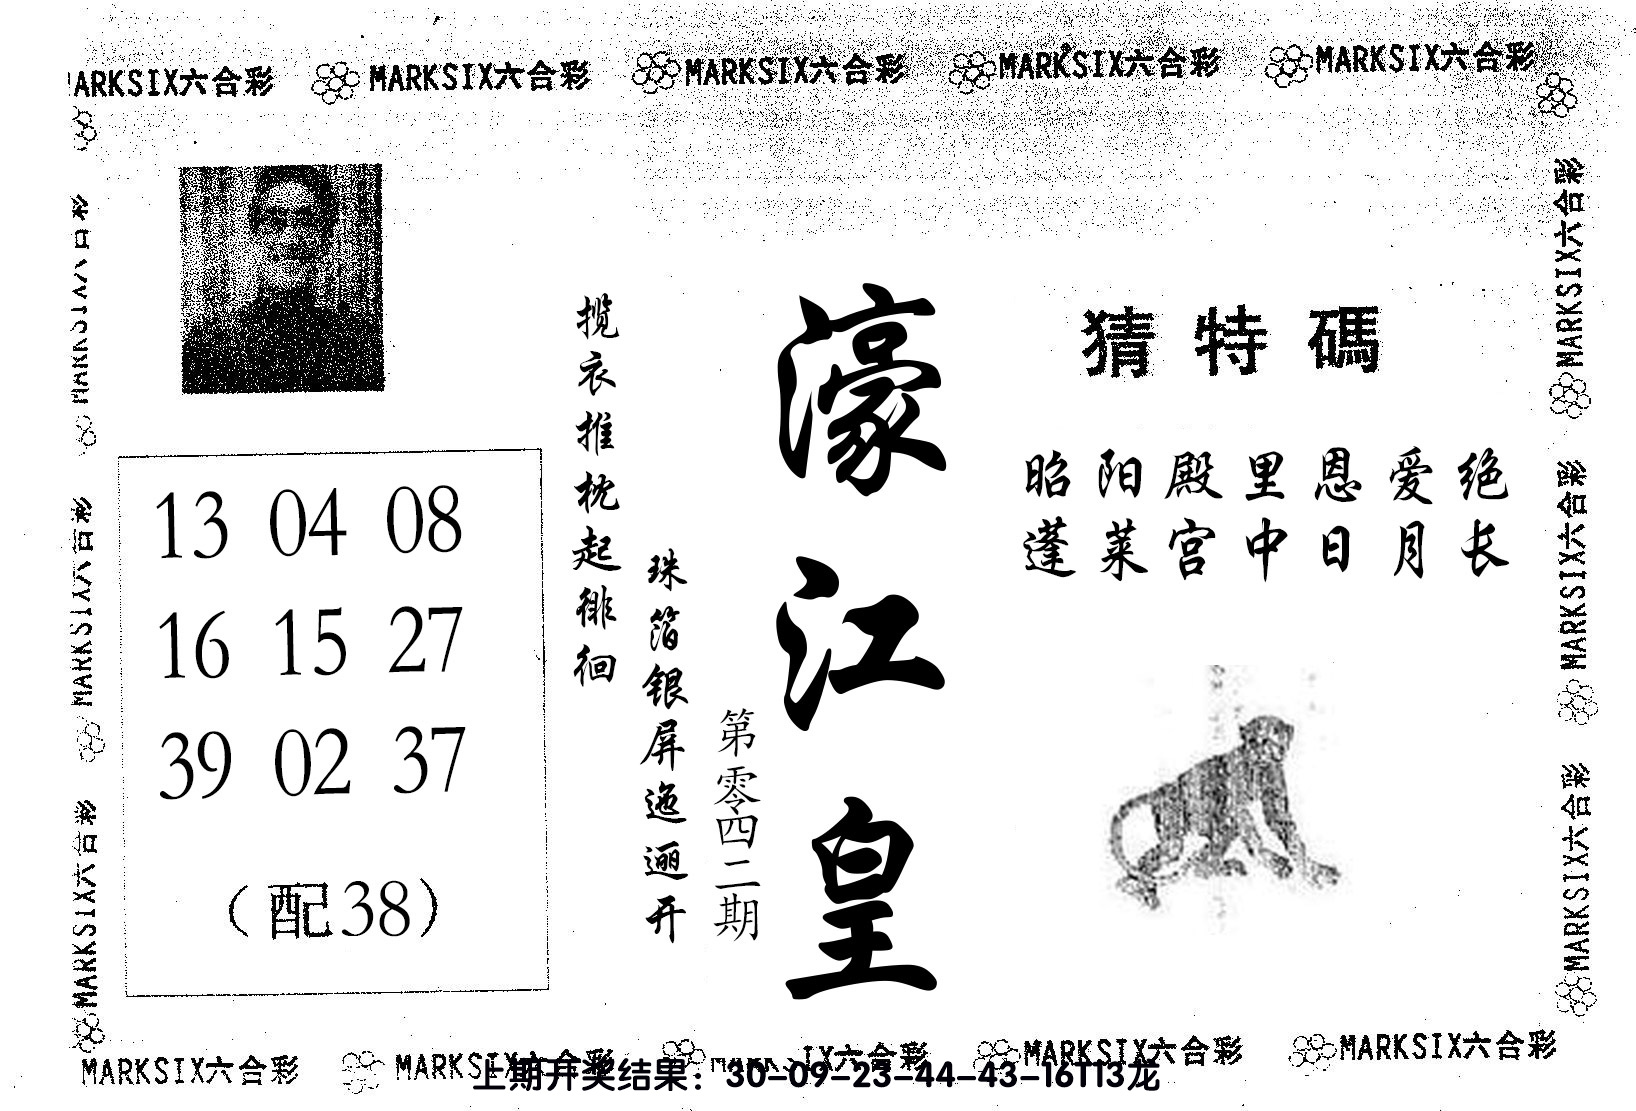 MARKSIX六合彩 MARKSIX六合彩 MARKSIX六合彩 MARKSIX六合彩 MARKSIX六合彩
MARKSIX六合彩
MARKSIX六合彩
MARKSIX六合彩
13 04 08
16 15 27
39 02 37
(配38)
揽衣推枕起徘徊
珠箔银屏迤逦开
第零四二期
濠江皇
猜特碼
昭阳殿里恩爱绝
蓬莱宫中日月长
MARKSIX六合彩
MARKSIX六合彩
MARKSIX六合彩
MARKSIX六合彩 MARKSIX六合彩 MARKSIX六合彩 MARKSIX六合彩 MARKSIX六合彩
上期开奖结果：30-09-23-44-43-16T13龙